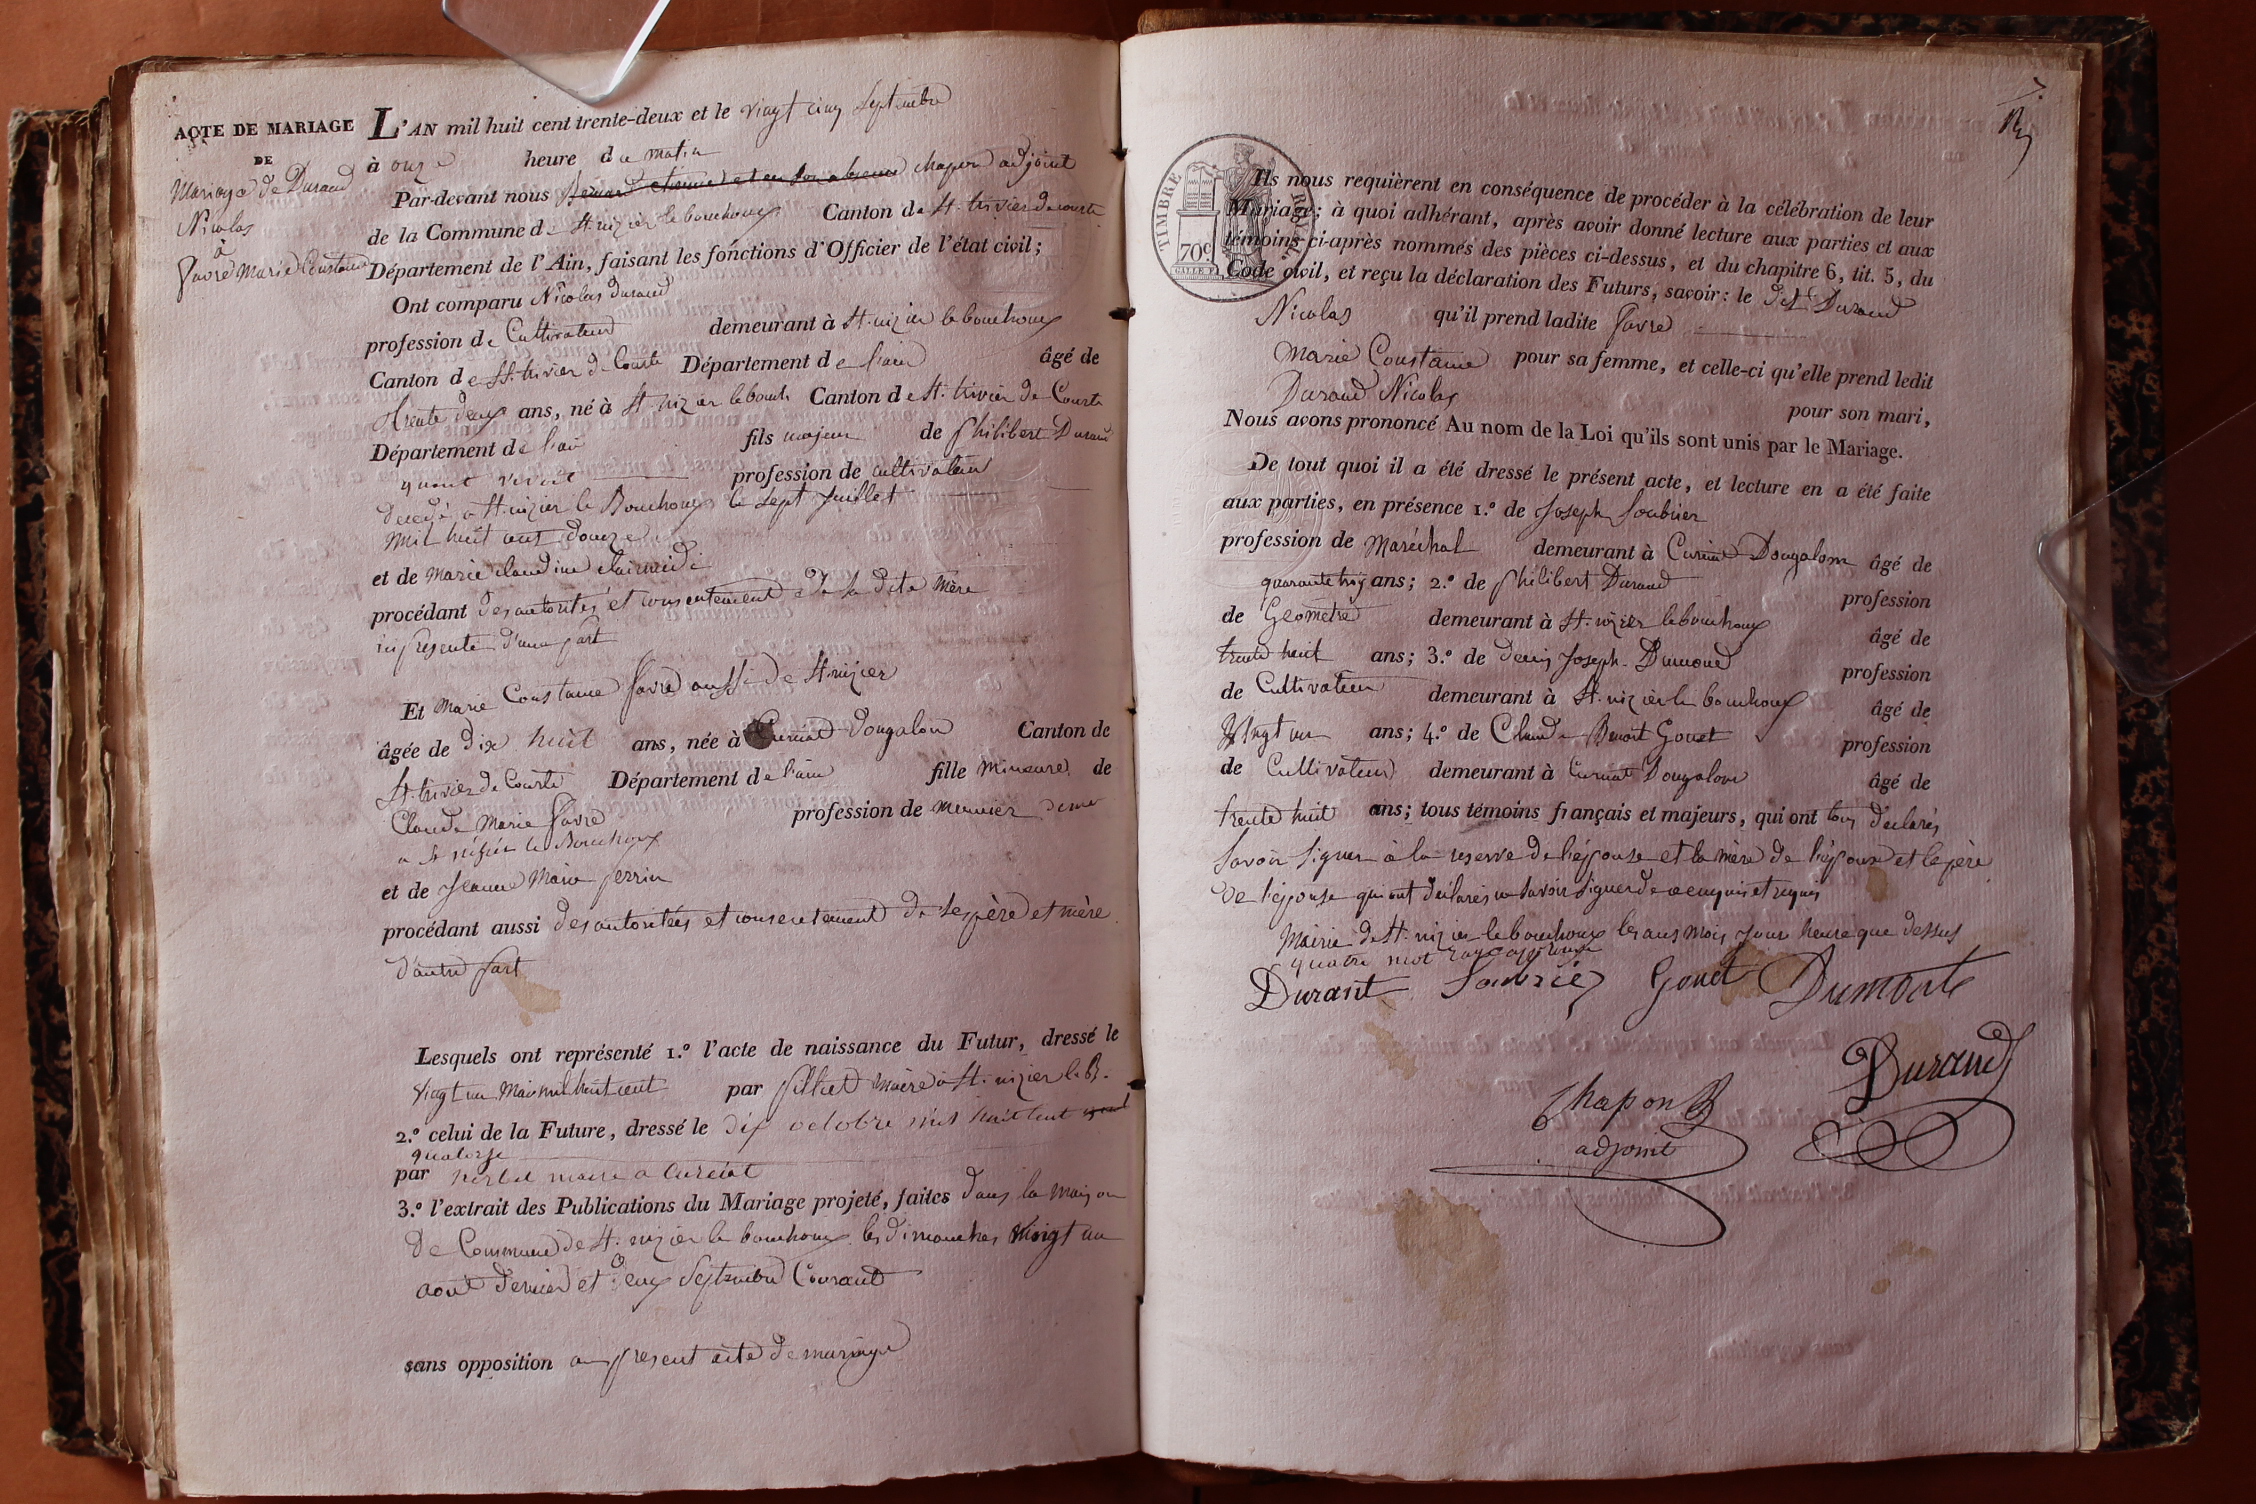 ACTE DE MARIAGE
DE
Mariage de Durand
Nicolas
à
favre Marie Constance
L'AN mil huit cent trente-deux et le vingt cinq Septembre
à onze heure du matin
Par-devant nous chapon adjoint
de la Commune de St. nizier le bouchoux Canton de St. trivier de courte
Département de l'Ain, faisant les fonctions d'Officier de l'état civil;
Ont comparu Nicolas durand
profession de Cultivateur demeurant à St. nizier le bouchoux
Canton de St. trivier de Courte Département de l'ain âgé de
trente deux ans, né à St nizier le bouch Canton de St. trivier de Courte
Département de l'ain fils majeur de philibert Durand
quant vivait profession de cultivateur
décédé a St nizier le Bouchoux le sept Juillet
mil huit cent douze
et de Marie claudine
procédant des autorités et consentement de la dite Mère
ici présente d'une part
Et Marie Constance favre aussi de St nizier
âgée de dix huit ans, née à Curciat Dongalon Canton de
St. trivier de Courte Département de l'ain fille Mineure de
Claude Marie favre profession de meunier dem
a St nizier le Bouchoux
et de Jeanne Marie perrin
procédant aussi des autorités et consentement de ses père et mère
d'autre part
Lesquels ont représenté 1.º l'acte de naissance du Futur, dressé le
vingt un Mai mil huit cent par Maire à St. nizier le B.
2.º celui de la Future, dressé le dix octobre mil huit cent
quatorze
par maire a Curciat
3.º l'extrait des Publications du Mariage projeté, faites dans la maison
de Commune de St. nizier le bouchoux les dimanches Vingt un
août dernier et deux Septembre Courant
sans opposition au présent acte de mariage
TIMBRE ROYAL
70c
Ils nous requièrent en conséquence de procéder à la célébration de leur
Mariage; à quoi adhérant, après avoir donné lecture aux parties et aux
témoins ci-après nommés des pièces ci-dessus, et du chapitre 6, tit. 5, du
Code civil, et reçu la déclaration des Futurs, savoir: le dit Durand
Nicolas qu'il prend ladite favre
Marie Constance pour sa femme, et celle-ci qu'elle prend ledit
Durand Nicolas pour son mari,
Nous avons prononcé Au nom de la Loi qu'ils sont unis par le Mariage.
De tout quoi il a été dressé le présent acte, et lecture en a été faite
aux parties, en présence 1.º de Joseph Soubrier
profession de Maréchal demeurant à Curciat Dongalon âgé de
quarante trois ans; 2.º de philibert Durand profession
de Géomètre demeurant à St. nizier le bouchoux âgé de
trente huit ans; 3.º de denis Joseph profession
de Cultivateur demeurant à St. nizier le bouchoux âgé de
Vingt un ans; 4.º de Claude Benoit Gonet profession
de Cultivateur demeurant à Curciat Dongalon âgé de
trente huit ans; tous témoins français et majeurs, qui ont tous déclarés
Savoir Signer à la reserve de l'épouse et la mère de l'époux et le père
de l'épouse qui ont déclarés ne savoir Signer de ce enquis et requis
Mairie de St. nizier le bouchoux les ans mois jour heure que dessus
quatre mot rayé
Durant Gonet Dumont
Durand
Chapon
adjoint